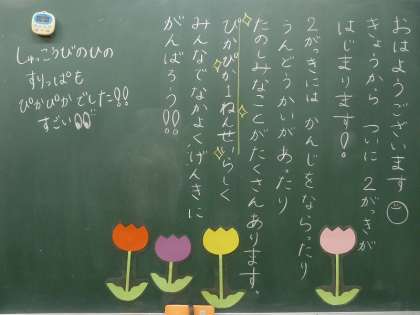 おはようございます
きょうから ついに 2がっきが
はじまります!
2がっきには かんじをならったり
うんどうかいがあったり
たのしみなことがたくさんあります。
ぴかぴか1ねんせいらしく
みんなでなかよく、げんきに
がんばろう!!
しゅっこうびのひの
すりっぱも
ぴかぴかでした!!
すごい!!